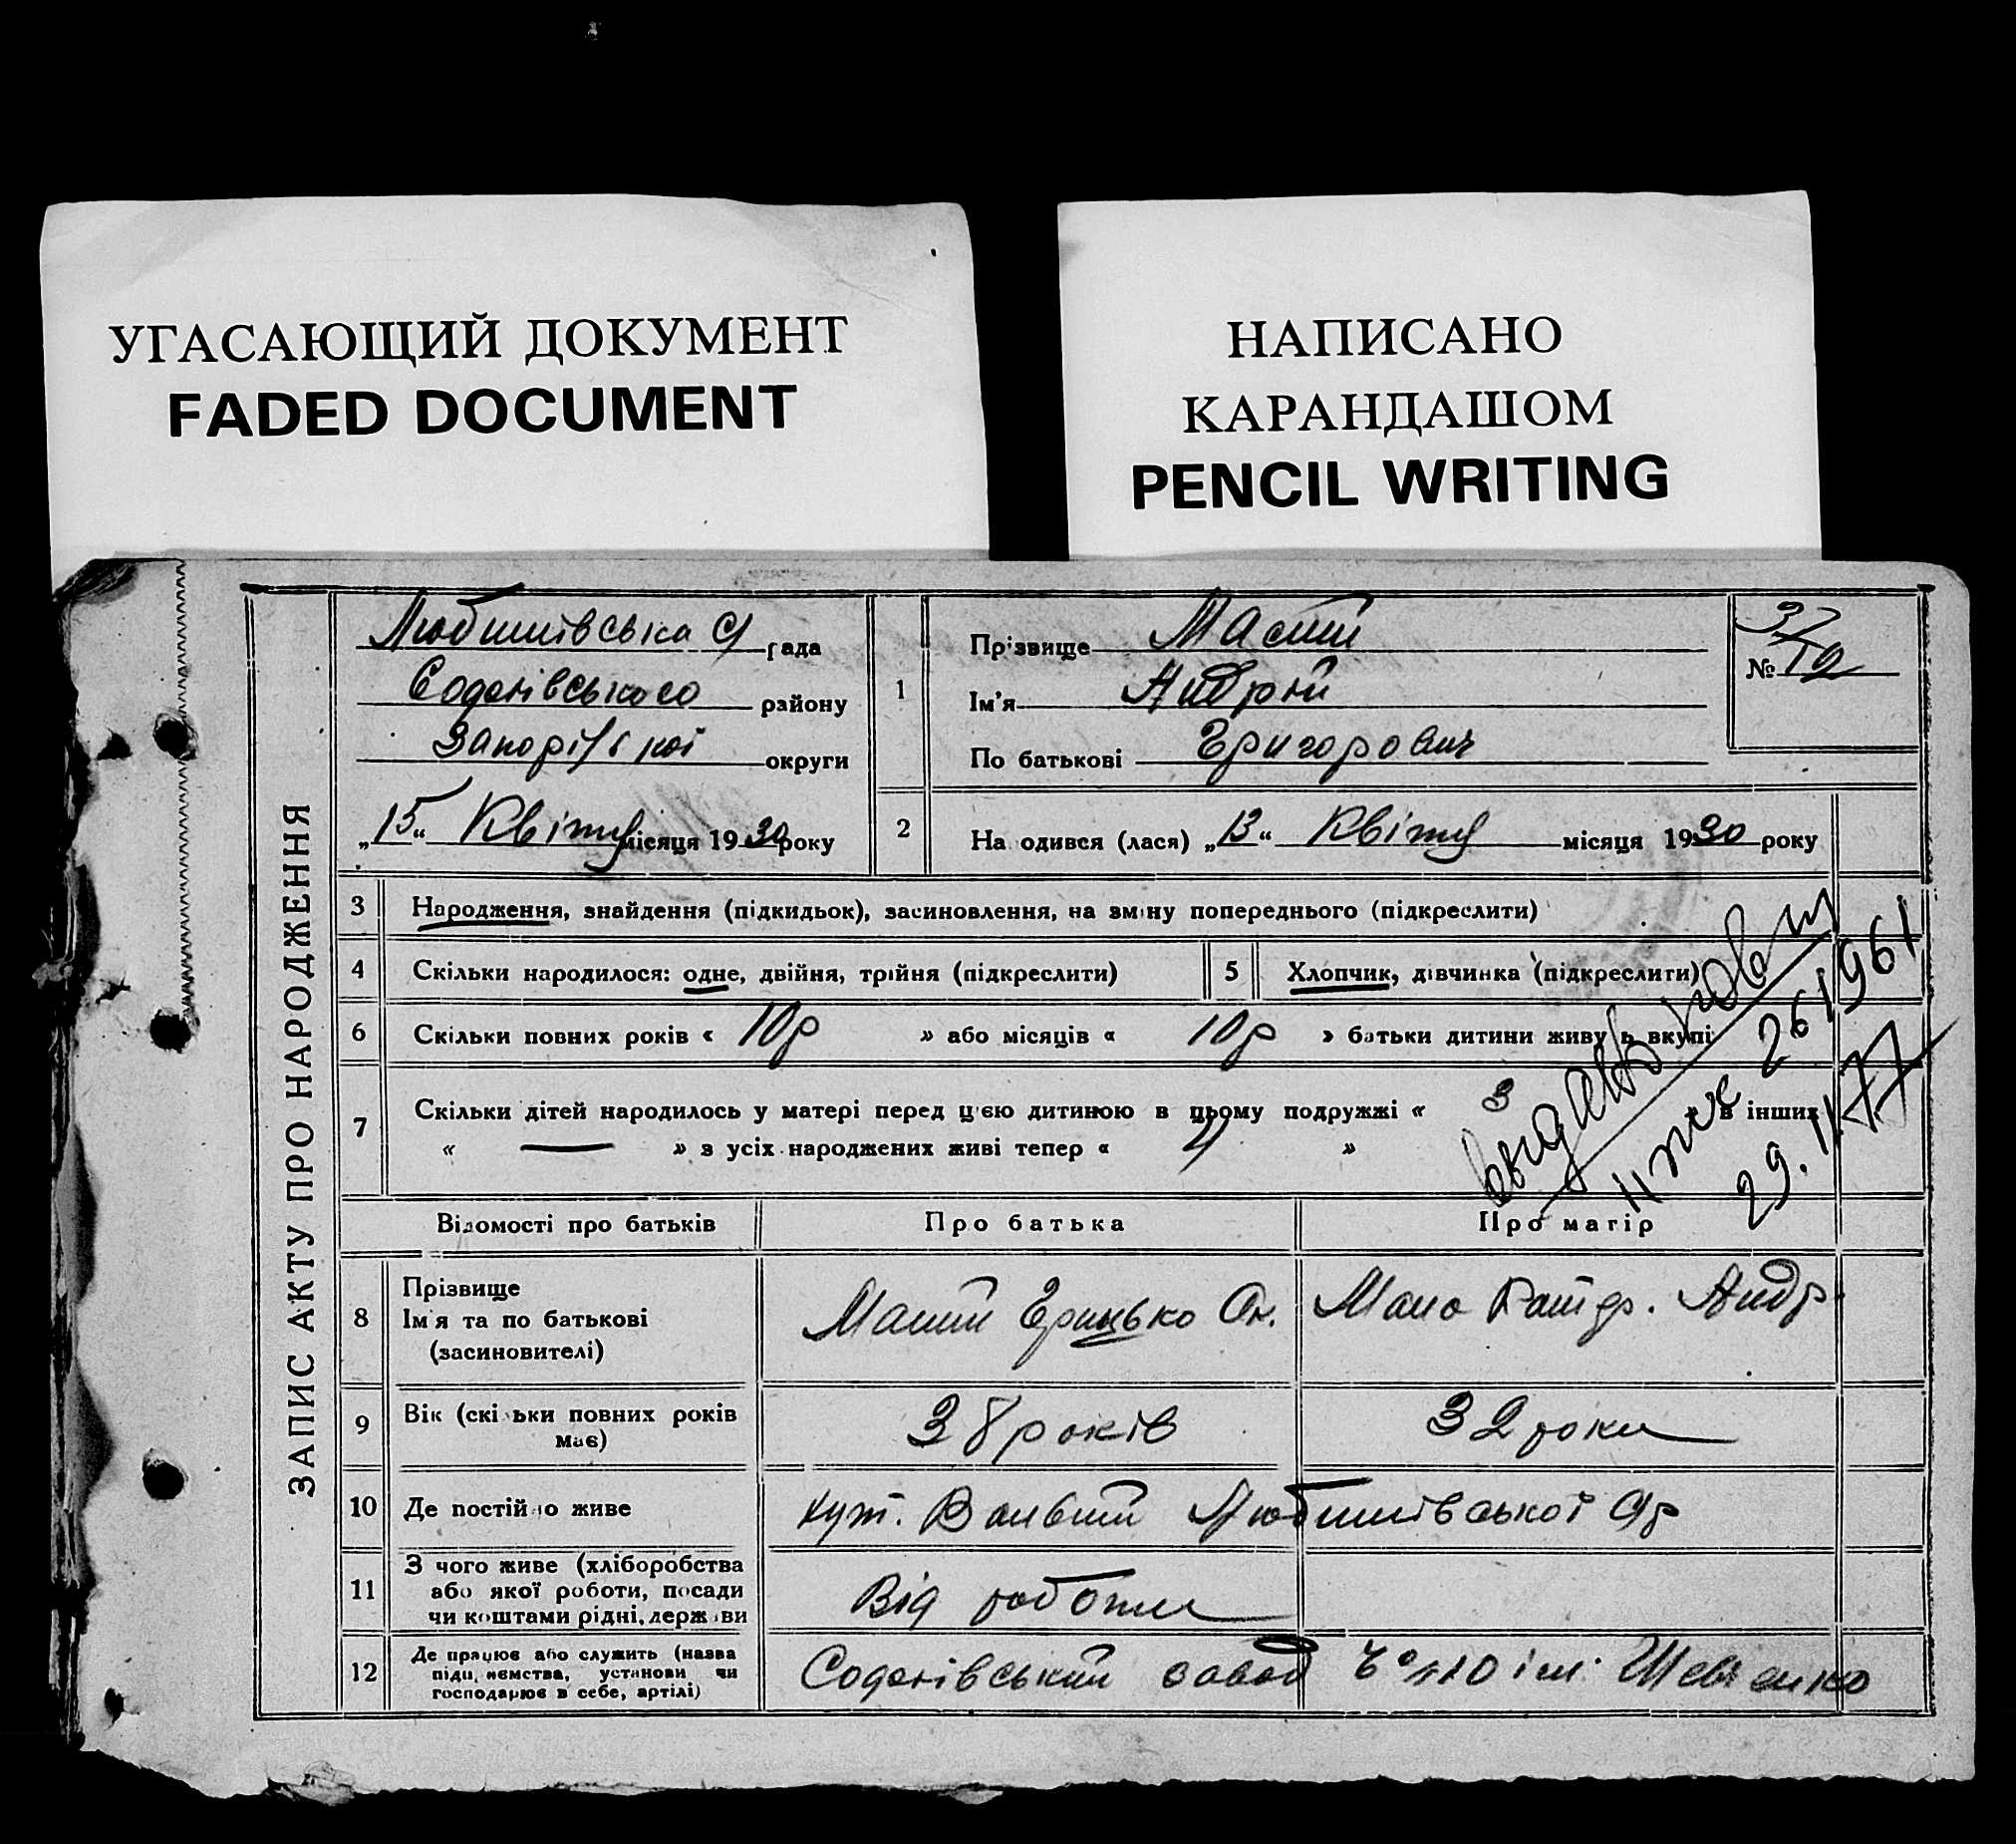 УГАСАЮЩИЙ ДОКУМЕНТ
FADED DOCUMENT
НАПИСАНО
КАРАНДАШОМ
PENCIL WRITING
ЗАПИС АКТУ ПРО НАРОДЖЕННЯ
Любимівська с/ рада
району
округи
„15“ Квітня місяця 1930 року
1
Прізвище Малий
Ім'я Андрій
По батькові Григорович
№
2
На одився (лася) „13“ Квітня місяця 1930 року
3 Народження, знайдення (підкидьок), засиновлення, на зміну попереднього (підкреслити)
4 Скільки народилося: одне, двійня, трійня (підкреслити)
5 Хлопчик, дівчинка (підкреслити)
6 Скільки повних років « 10 р » або місяців « 10 р » батьки дитини живу ь вкупі
7 Скільки дітей народилось у матері перед цією дитиною в цьому подружжі « 3 в інших
« — » з усіх народжених живі тепер « 4 »
29. 11 77
Відомості про батьків Про батька Про матір
8 Прізвище
Ім'я та по батькові
(засиновителі)
Малий Грицько Он.
Мала Андр.
9 Вік (скі ьки повних років
має)
38 років
32 роки
10 Де постій о живе
хут. Вільний Любимівської с/р
11 З чого живе (хліборобства
або якої роботи, посади
чи коштами рідні, держави
Від роботи
12 Де працює або служить (назва
підп иємства, установи чи
господарює в себе, артілі)
завод ім. Шевченко